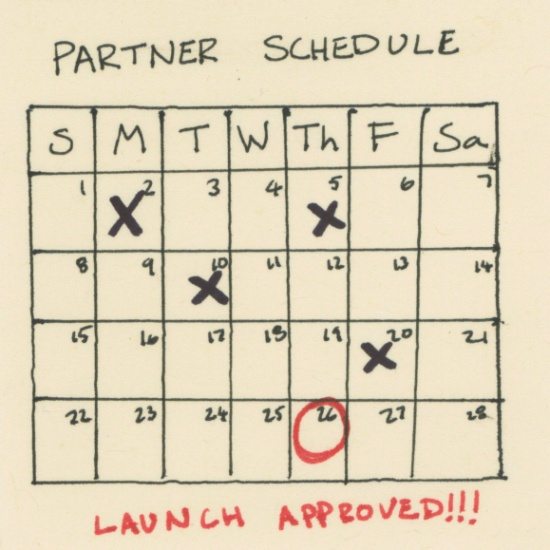 PARTNER SCHEDULE
S M T W Th F Sa
1 2 3 4 5 6 7
8 9 10 11 12 13 14
15 16 17 18 19 20 21
22 23 24 25 26 27 28
LAUNCH APPROVED!!!